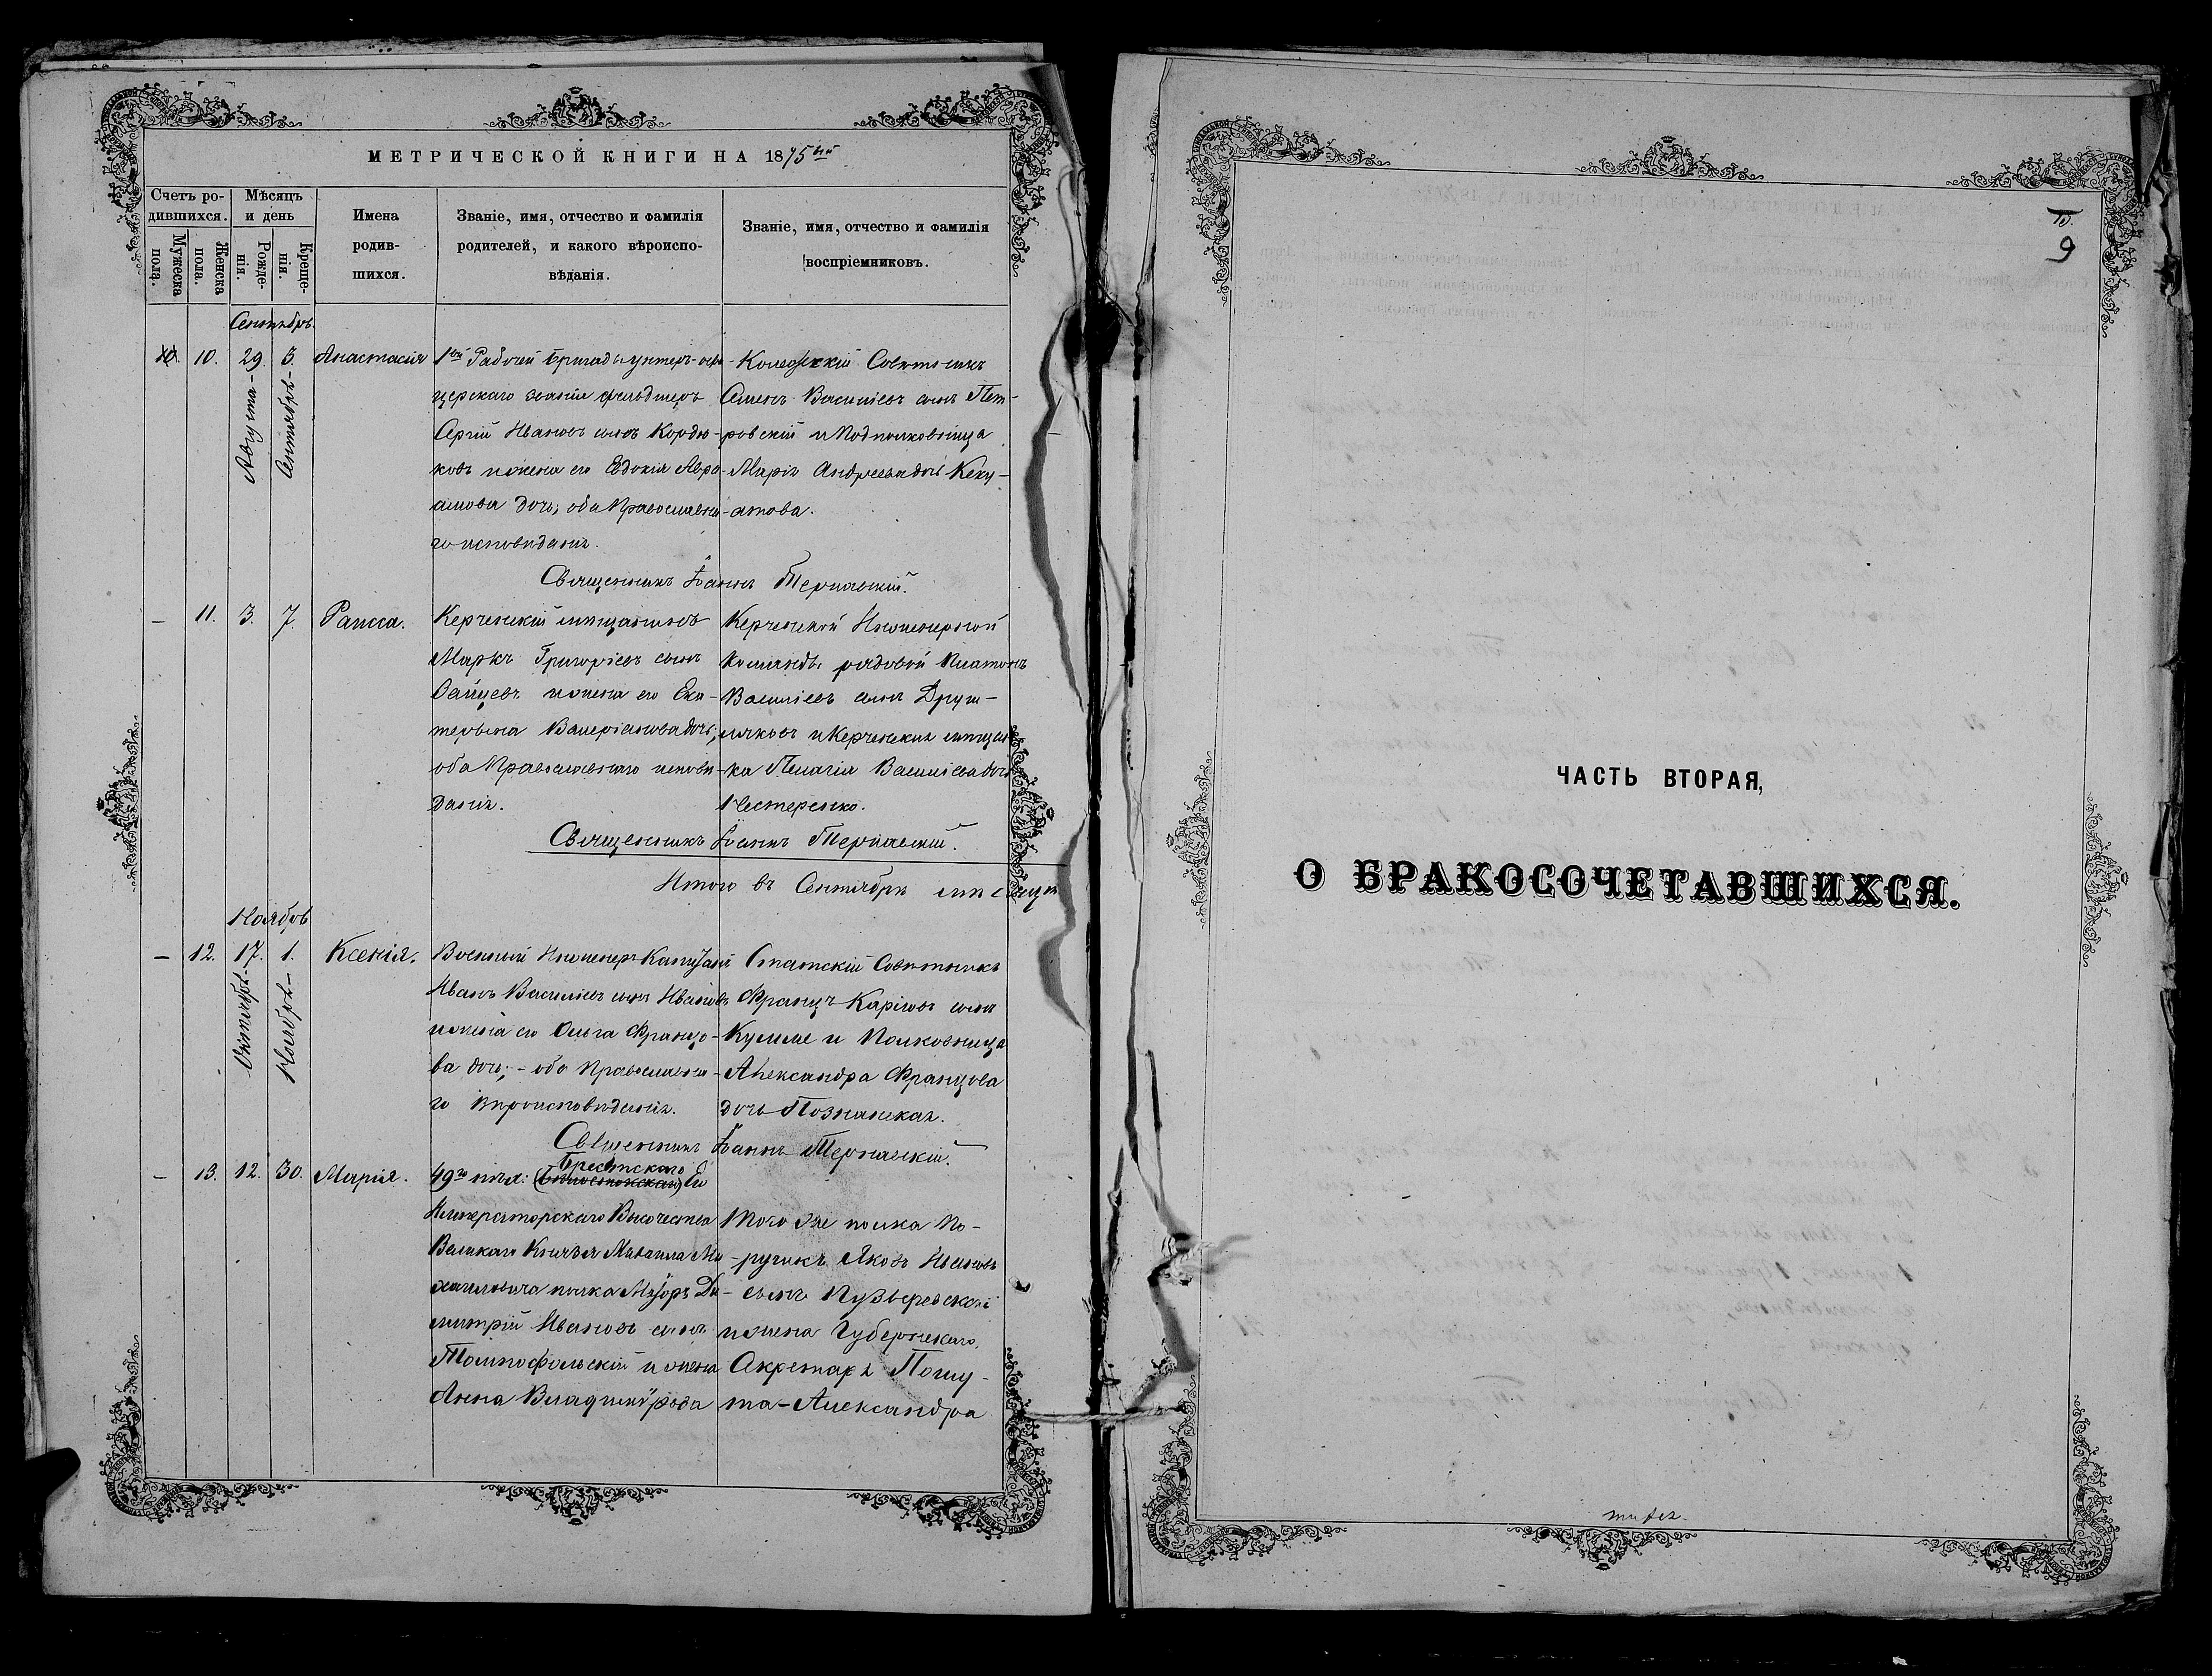 МЕТРИЧЕСКОЙ КНИГИ НА 1875ый
Счетъ ро-
дившихся.
Мужеска
пола.
Женска
пола.
Мѣсяцъ
и день
Рожде-
нія.
Креще-
нія.
Имена
родив-
шихся.
Званіе, имя, отчество и фамилія
родителей, и какого вѣроиспо-
вѣданія.
Званіе, имя, отчество и фамилія
воспріемниковъ.
Сентябрь
10. 29 Августа 3. Сентября Анастасія
1ой Рабочей бригады унтеръ-офи-
церскаго званія фельдшеръ
Сергій Ивановъ сынъ Кордю-
ковъ и жена его Евдокія Авра-
амова дочь; оба Православна-
го исповѣданія.
Коллежскій Совѣтникъ
Семенъ Василіевъ сынъ Пет-
ровскій и Подполковница
Марія Андреева дочь Кеку-
атова.
Священникъ Іоаннъ Тернавскій.
– 11. 3. 7. Раисса.
Керченскій мѣщанинъ
Маркъ Григоріевъ сынъ
и жена его Ека-
терина Валеріанова дочь;
оба Православнаго исповѣ-
данія.
Керченской Инженерной
Команды рядовой Платонъ
Василіевъ сынъ Друш-
ляковъ и Керченская мѣщан-
ка Пелагія Василіева дочь
Нестеренко.
Священникъ Іоаннъ Тернавскій.
Итого въ Сентябрѣ мѣсяцѣ
Ноябрь
– 12. 17. Октября 1. Ноября Ксенія.
Военный Инженеръ-Капитанъ
Иванъ Василіевъ сынъ Ивановъ
и жена его Ольга Францо-
ва дочь; – оба Православна-
го вѣроисповѣданія.
Статскій Совѣтникъ
Францъ Карловъ сынъ
Кумме и Полковница
Александра Францова
дочь Познанская.
Священникъ Іоаннъ Тернавскій.
– 13. 12. 30. Марія.
Брестскаго
49го пѣх: Его
Императорскаго Высочества
Великаго Князя Михаила Ми-
хаиловича полка Маіоръ Ди-
митрій Ивановъ сынъ
и жена
Анна Владимірова
Того же полка По-
ручикъ Яковъ Ивановъ
сынъ Пузыревскій
и жена Губернскаго
Секретаря Пошу-
та-Александра
9
ЧАСТЬ ВТОРАЯ,
О БРАКОСОЧЕТАВШИХСЯ.